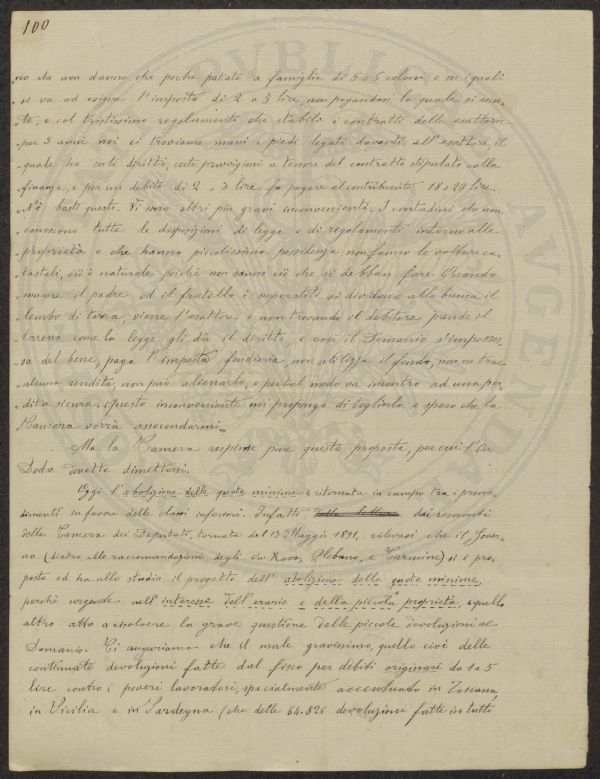 100
"no che non danno che poche patate a famiglie di 5 o 6 coloni e su i quali
"si va ad esigere l'imposta di 2 o 3 lire, non pagandosi la quale si escu-
"te, e col tristissimo regolamento che stabilì i contratti delle esattorie
"per 5 anni noi ci troviamo mani e piedi legati davanti all'esattore, il
"quale ha certi diritti, certe provvigioni a tenore del contratto stipulato colla
"finanza, e per un debito di 2 o 3 lire fa pagare al contribuente 18 o 20 lire.
"Nè basti questo. Vi sono altri più gravi inconvenienti. I contadini che non
"conoscono tutte le disposizioni di legge e di regolamenti intorno alle
"proprietà e che hanno piccolissima possidenza non fanno le volture ca-
"tastali, ciò è naturale poichè non sanno ciò che si debban fare. Quando
"muore il padre od il fratello i superstiti si dividono alla buona il
"lembo di terra, viene l'esattore e non trovando il debitore prende il
"terreno come la legge gli dà il diritto, e così il Demanio s'imposses-
"sa del bene, paga l'imposta fondiaria, non utilizza il fondo, non ne trae
"alcuna rendita, non può alienarlo, e per tal modo va incontro ad una per-
"dita sicura. Questo inconveniente mi propongo di toglierlo e spero che la
"Camera vorrà assecondarmi."
Ma la Camera respinse pure questa proposta, per cui l'On.
Doda dovette dimettersi.
Oggi l'abolizione delle quote minime è ritornata in campo tra i provve-
dimenti in favore delle classi inferiori. Infatti dai resoconti
della Camera dei Deputati, tornata del 13 Maggio 1891, rilevasi che il Gover-
no (dietro alle raccomandazioni degli On. Rava, Plebano, e Carmine) si è pro-
posto ed ha allo studio il progetto dell'abolizione delle quote minime,
perchè urgente nell'interesse dell'erario e della piccola proprietà, e quello
altro atto a risolvere la grave questione delle piccole devoluzioni al
Demanio. Ci auguriamo che il male gravissimo, quello cioè delle
continuate devoluzioni fatte dal fisco per debiti originari da 1 a 5
lire contro i poveri lavoratori, specialmente accentuato in Toscana,
in Sicilia e in Sardegna (che delle 64.826 devoluzioni fatte in tutto